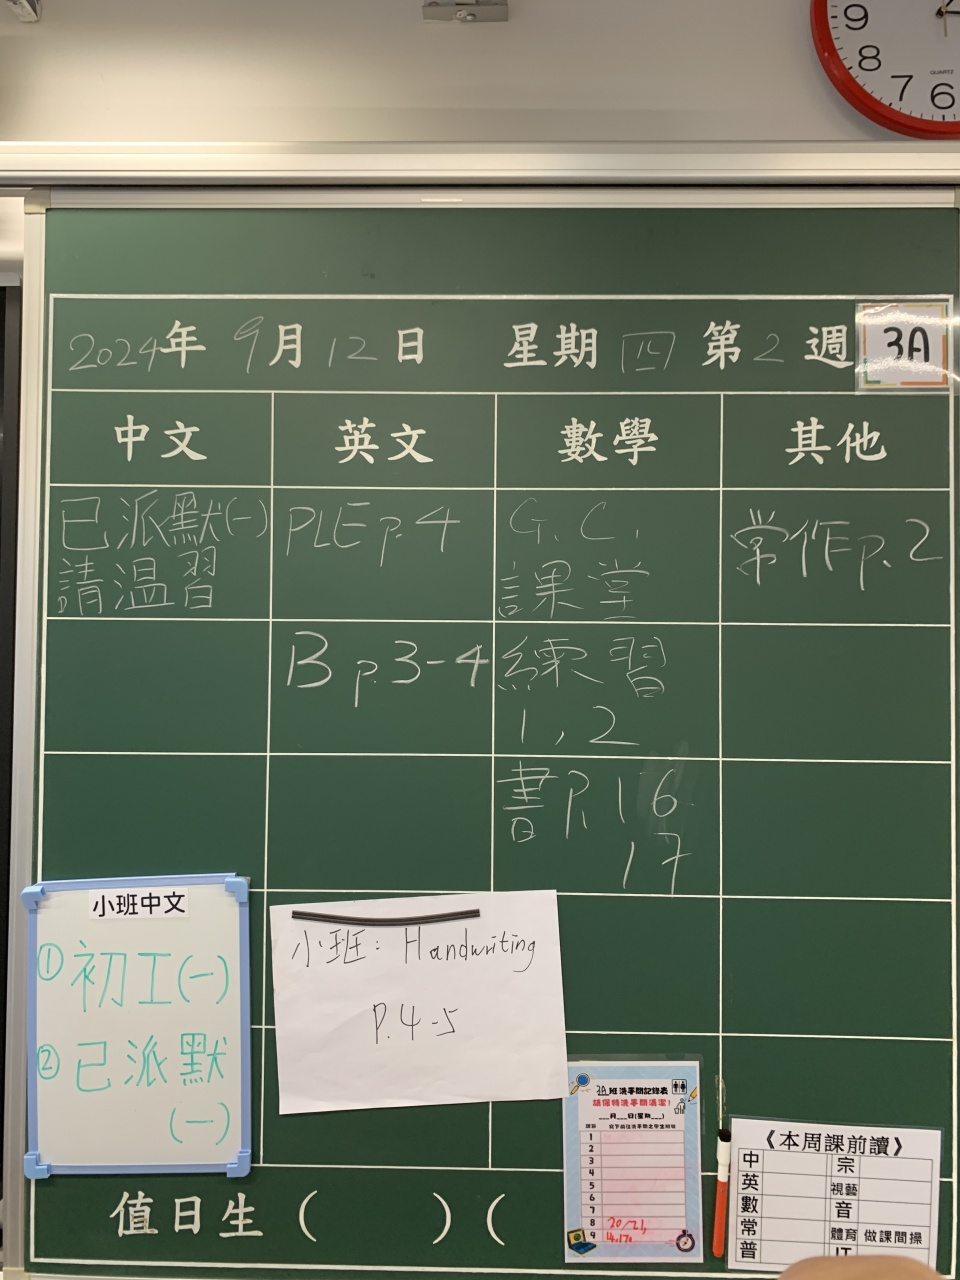 9
8
7
6
QUARTZ
2024年 9月12日 星期四 第2週 3A
中文 英文 數學 其他
已派默(一)
請溫習
PLE p.4
B p.3-4
G.C.
課堂
練習
1,2
書P.16
17
常作p.2
小班中文
①初工(一)
②已派默
(一)
小班: Handwriting
P.4-5
3A班洗手間記錄表
請保時洗手間清潔!
___月___日(星期___)
1
2
3
4
5
6
7
8 20/21,
9 14,17
《本周課前讀》
中 宗
英 視藝
數 音
常 體育 做課間操
普 IT
值日生 ( ) (